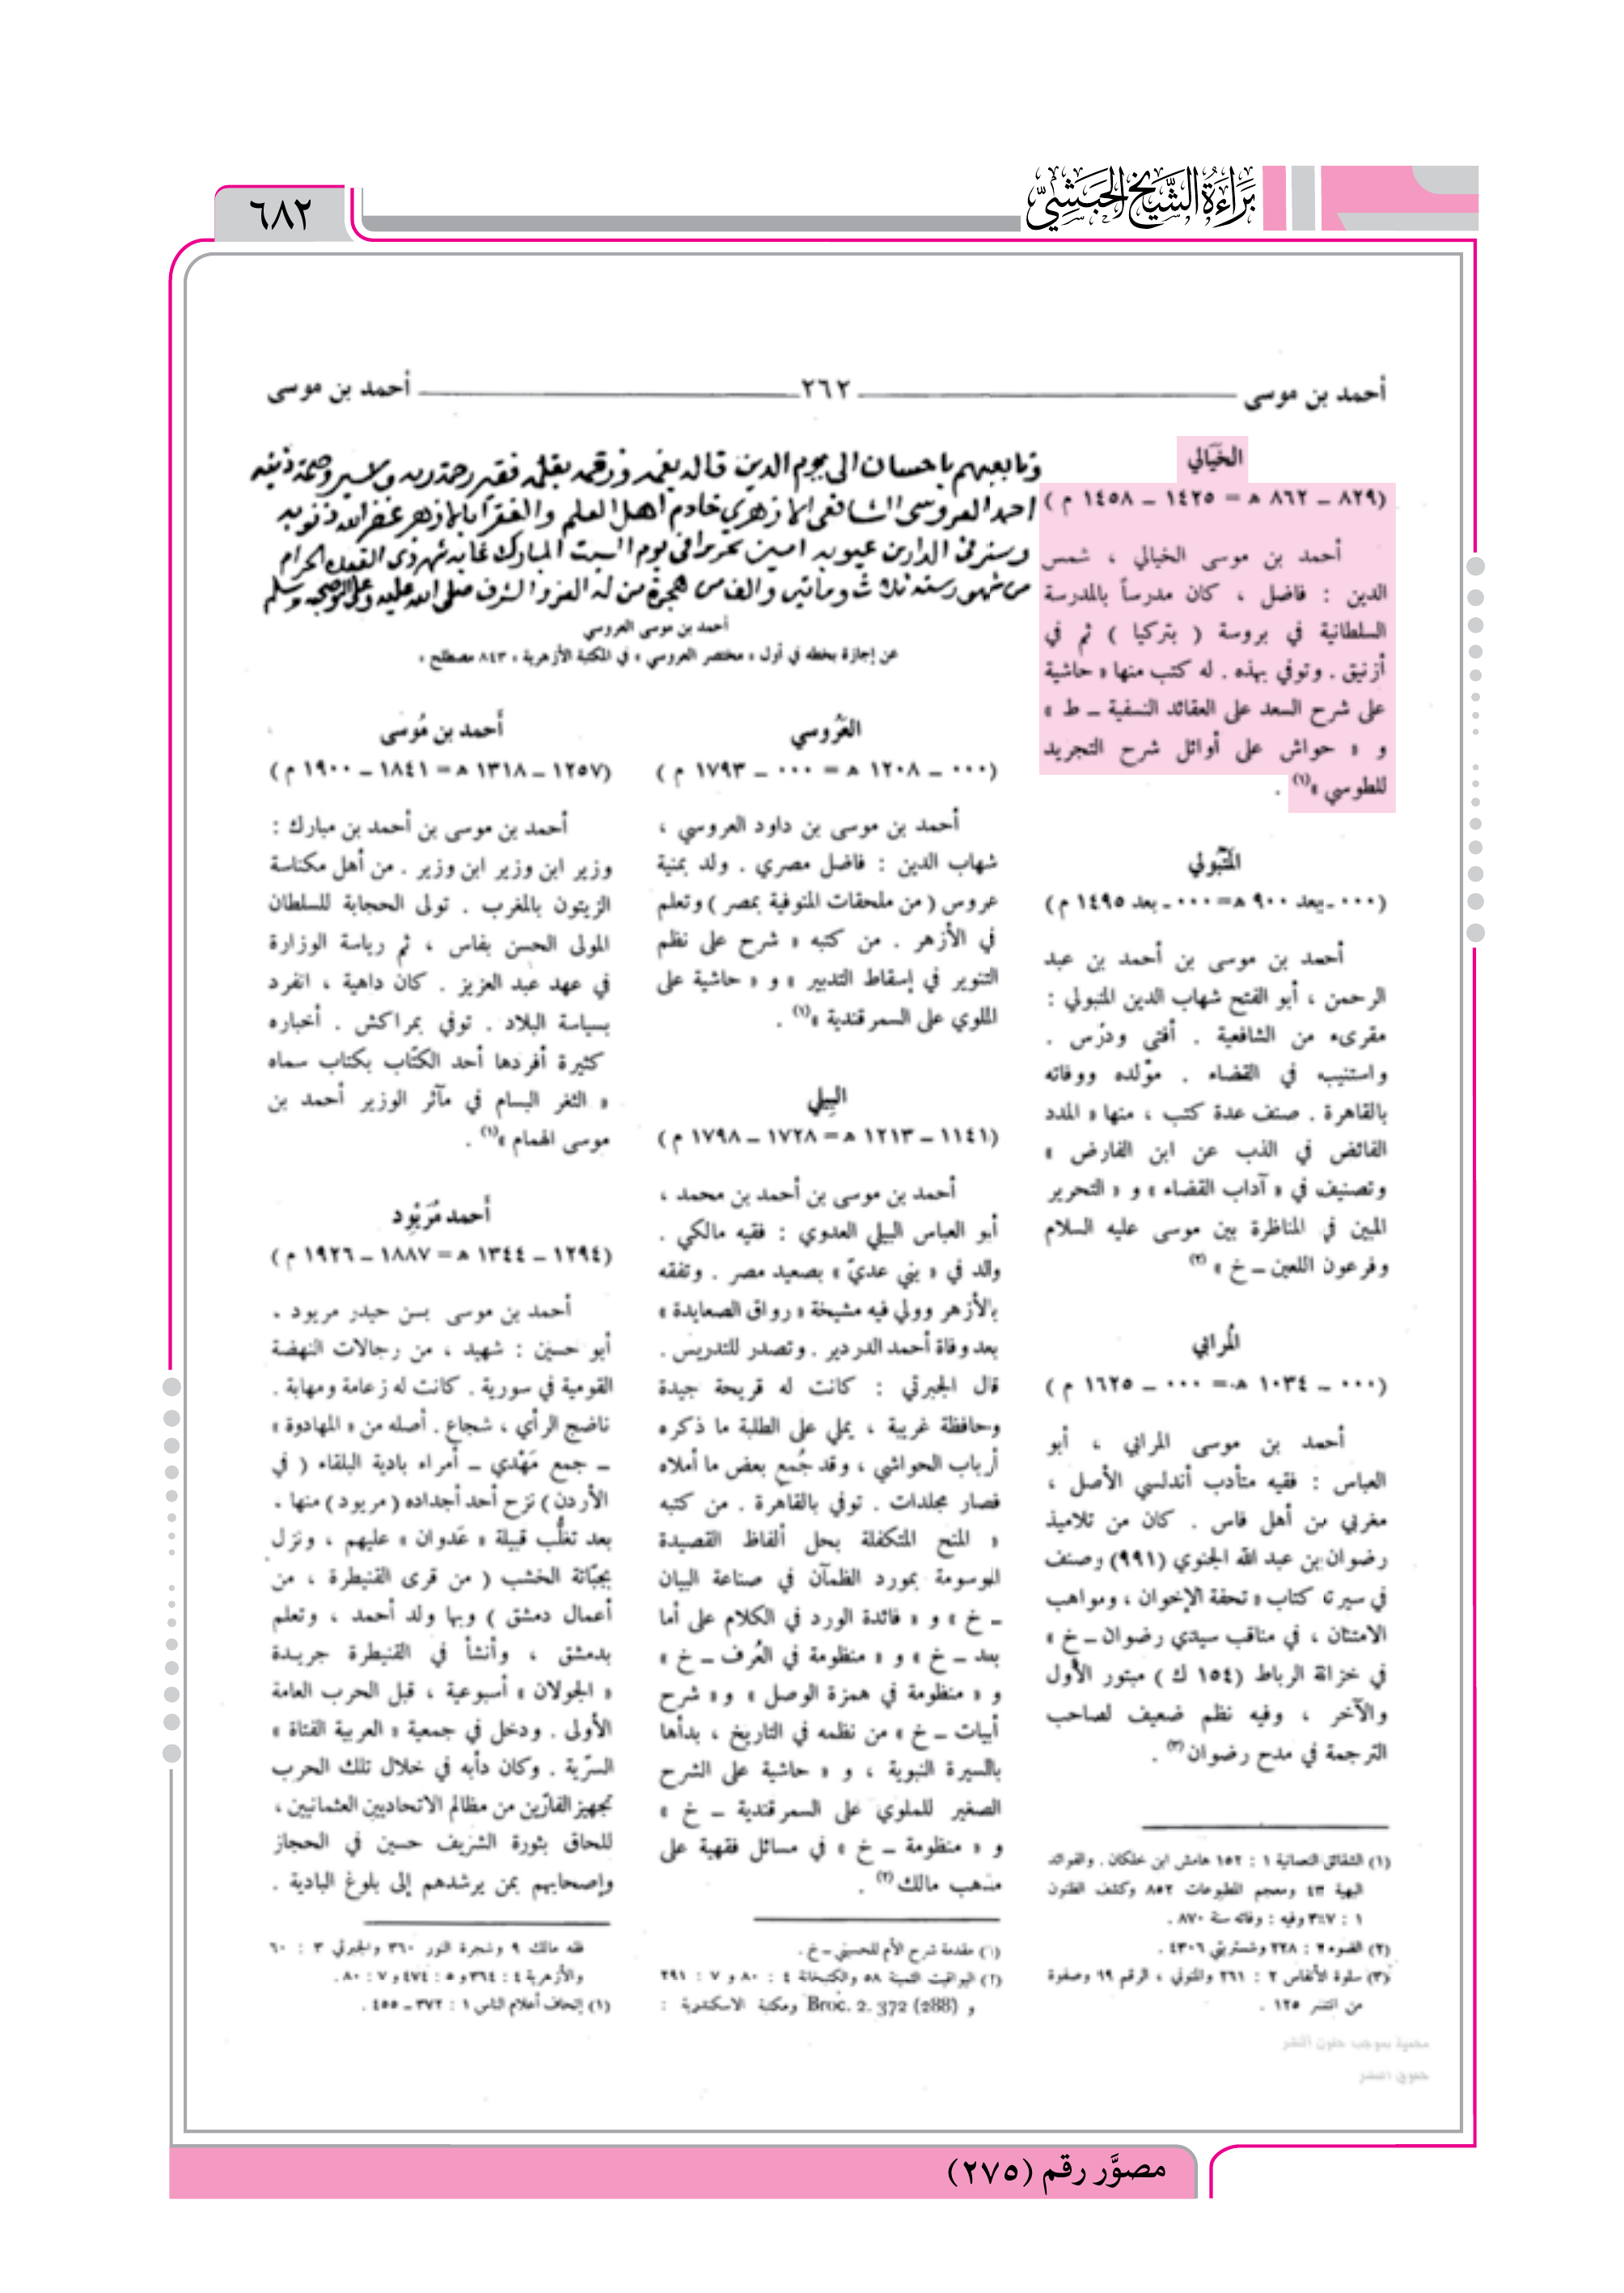 ٦٨٢
براءة الشيخ الحبشي
أحمد بن موسى
٢٦٢
أحمد بن موسى
الخيالي
(٨٢٩ – ٨٦٢ ه = ١٤٢٥ – ١٤٥٨ م)
أحمد بن موسى الخيالي ، شمس
الدين : فاضل ، كان مدرساً بالمدرسة
السلطانية في بروسة ( بتركيا ) ثم في
أزنيق . وتوفي بهذه . له كتب منها « حاشية
على شرح السعد على العقائد النسفية – ط »
و « حواش على أوائل شرح التجريد
للطوسي »(١) .
المتبولي
(٠٠٠ ـ بعد ٩٠٠ ه = ٠٠٠ ـ بعد ١٤٩٥ م)
أحمد بن موسى بن أحمد بن عبد
الرحمن ، أبو الفتح شهاب الدين المتبولي :
مقرىء من الشافعية . أفتى ودرّس .
واستنيب في القضاء . مولده ووفاته
بالقاهرة . صنف عدة كتب ، منها « المدد
الفائض في الذب عن ابن الفارض »
وتصنيف في « آداب القضاء » و « التحرير
المبين في المناظرة بين موسى عليه السلام
وفرعون اللعين – خ » (٢)
المرابي
(٠٠٠ – ١٠٣٤ ه = ٠٠٠ – ١٦٢٥ م)
أحمد بن موسى المرابي ، أبو
العباس : فقيه متأدب أندلسي الأصل ،
مغربي من أهل فاس . كان من تلاميذ
رضوان بن عبد الله الجنوي (٩٩١) وصنف
في سيرته كتاب « تحفة الإخوان ، ومواهب
الامتنان ، في مناقب سيدي رضوان – خ »
في خزانة الرباط (١٥٤ ك) مبتور الأول
والآخر ، وفيه نظم ضعيف لصاحب
الترجمة في مدح رضوان(٣) .
(١) الشقائق النعمانية ١ : ١٥٢ هامش ابن خلكان . والفوائد
البهية ٤٣ ومعجم المطبوعات ٨٥٢ وكشف الظنون
١ : ٣٤٧ وفيه : وفاته سنة ٨٧٠ .
(٢) الضوء ٢ : ٢٢٨ وشستربتي ٤٣٠٦ .
(٣) سلوة الأنفاس ٢ : ٢٦١ والمنوني ، الرقم ٩٩ وصفوة
من انتشر ١٢٥ .
وتابعيهم باحسان الى يوم الدين قاله بفمه ورقمه بقلمه فقير رحمة ربه
احمد العروسى الشافعى الازهري خادم اهل العلم والفقرا بالازهر غفر الله ذنوبه
وستر فى الدارين عيوبه امين تحريرا فى يوم السبت المبارك غاية شهر ذى القعدة الحرام
من شهور سنة ثلاث ومايتين والف من هجرة من له العز والشرف صلى الله عليه وعلى اله وصحبه وسلم
أحمد بن موسى العروسي
عن إجازة بخطه في أول « مختصر العروسي » في المكتبة الأزهرية « ٨٤٣ مصطلح »
العَرُوسي
(٠٠٠ – ١٢٠٨ ه = ٠٠٠ – ١٧٩٣ م)
أحمد بن موسى بن داود العروسي ،
شهاب الدين : فاضل مصري . ولد بمنية
عروس ( من ملحقات المنوفية بمصر ) وتعلم
في الأزهر . من كتبه « شرح على نظم
التنوير في إسقاط التدبير » و « حاشية على
الملوي على السمرقندية »(١) .
البيلي
(١١٤١ – ١٢١٣ ه = ١٧٢٨ – ١٧٩٨ م)
أحمد بن موسى بن أحمد بن محمد ،
أبو العباس البيلي العدوي : فقيه مالكي .
ولد في « بني عديّ » بصعيد مصر . وتفقه
بالأزهر وولي فيه مشيخة « رواق الصعايدة »
بعد وفاة أحمد الدردير . وتصدر للتدريس .
قال الجبرتي : كانت له قريحة جيدة
وحافظة غريبة ، يملي على الطلبة ما ذكره
أرباب الحواشي ، وقد جُمع بعض ما أملاه
فصار مجلدات . توفي بالقاهرة . من كتبه
« المنح المتكفلة بحل ألفاظ القصيدة
الموسومة بمورد الظمآن في صناعة البيان
– خ » و « فائدة الورد في الكلام على أما
بعد – خ » و « منظومة في العُرف – خ »
و « منظومة في همزة الوصل » و « شرح
أبيات – خ » من نظمه في التاريخ ، بدأها
بالسيرة النبوية ، و « حاشية على الشرح
الصغير للملوي على السمرقندية – خ »
و « منظومة – خ » في مسائل فقهية على
مذهب مالك(٢) .
(١) مقدمة شرح الأم للحسيني – خ .
(٢) اليواقيت الثمينة ٥٨ والكتبخانة ٤ : ٨٠ و ٧ : ٢٩١
و Broc. 2. 372 (288) ومكتبة الاسكندرية :
أحمد بن مُوسَى
(١٢٥٧ – ١٣١٨ ه = ١٨٤١ – ١٩٠٠ م)
أحمد بن موسى بن أحمد بن مبارك :
وزير ابن وزير ابن وزير . من أهل مكناسة
الزيتون بالمغرب . تولى الحجابة للسلطان
المولى الحسن بفاس ، ثم رياسة الوزارة
في عهد عبد العزيز . كان داهية ، انفرد
بسياسة البلاد . توفي بمراكش . أخباره
كثيرة أفردها أحد الكتّاب بكتاب سماه
« الثغر البسام في مآثر الوزير أحمد بن
موسى الهمام »(١) .
أحمد مُرَيْود
(١٢٩٤ – ١٣٤٤ ه = ١٨٨٧ – ١٩٢٦ م)
أحمد بن موسى بسن حيدر مريود .
أبو حسين : شهيد ، من رجالات النهضة
القومية في سورية . كانت له زعامة ومهابة .
ناضج الرأي ، شجاع . أصله من « المهادوة »
– جمع مَهْدي – أمراء بادية البلقاء ( في
الأردن ) نزح أحد أجداده ( مريود ) منها .
بعد تغلُّب قبيلة « عَدوان » عليهم ، ونزل
بجبّاثة الخشب ( من قرى القنيطرة ، من
أعمال دمشق ) وبها ولد أحمد ، وتعلم
بدمشق ، وأنشأ في القنيطرة جريدة
« الجولان » أسبوعية ، قبل الحرب العامة
الأولى . ودخل في جمعية « العربية الفتاة »
السرّية . وكان دأبه في خلال تلك الحرب
تجهيز الفارّين من مظالم الاتحاديين العثمانيين ،
للحاق بثورة الشريف حسين في الحجاز
وإصحابهم بمن يرشدهم إلى بلوغ البادية .
فقه مالك ٩ وشجرة النور ٣٦٠ والجبرتي ٣ : ٦٠
والأزهرية ٤ : ٣٦٤ و ٥ : ٤٧٤ و ٧ : ٨٠ .
(١) إتحاف أعلام الناس ١ : ٣٧٢ – ٤٥٥ .
محمية بموجب حقوق النشر
حقوق النشر
مصوَّر رقم (٢٧٥)